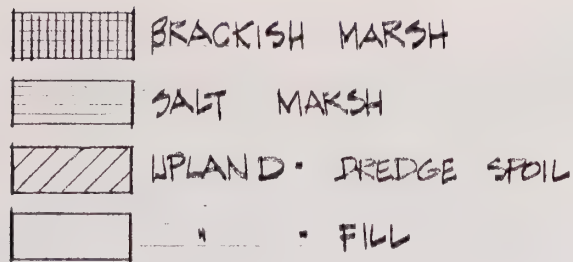 BRACKISH MARSH
SALT MARSH
UPLAND · DREDGE SPOIL
" · FILL